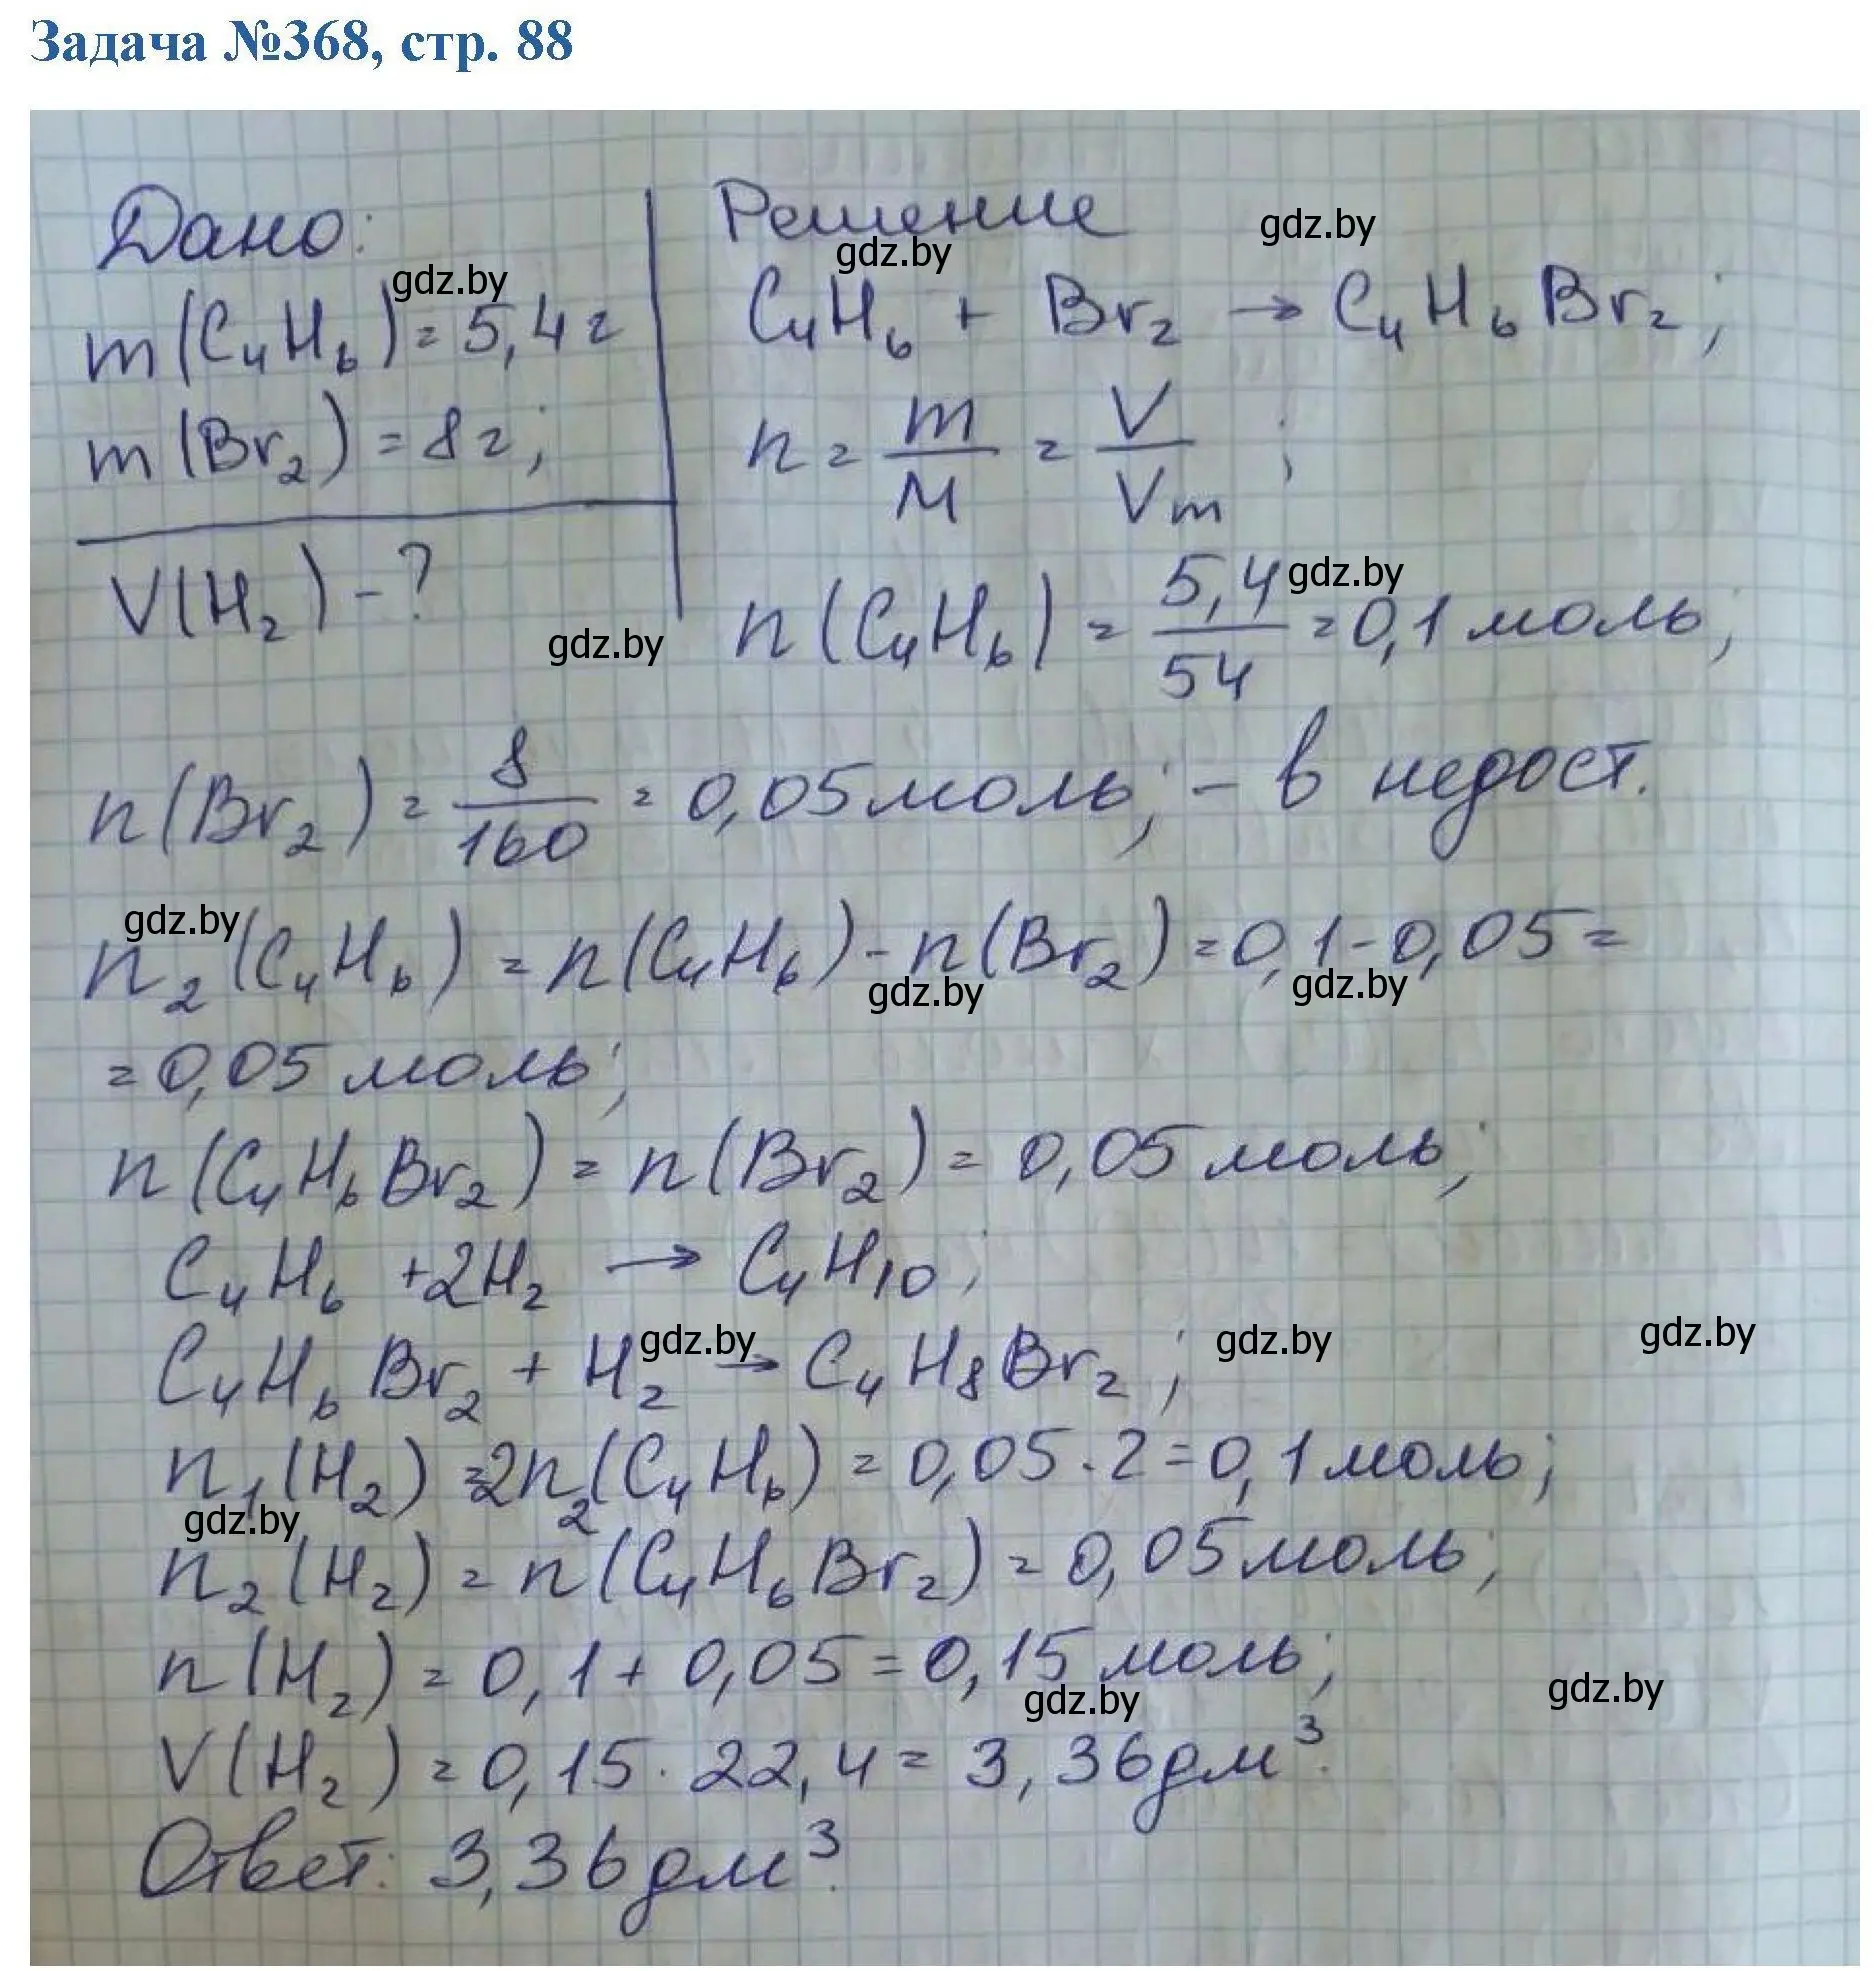 Задача №368, стр. 88
Дано:
m(C₄H₆) = 5,4 г
m(Br₂) = 8 г;
V(H₂) - ?
Решение
C₄H₆ + Br₂ → C₄H₆Br₂;
n = m/M = V/Vm;
n(C₄H₆) = 5,4/54 = 0,1 моль;
n(Br₂) = 8/160 = 0,05 моль; - в недост.
n₂(C₄H₆) = n(C₄H₆) - n(Br₂) = 0,1 - 0,05 =
= 0,05 моль;
n(C₄H₆Br₂) = n(Br₂) = 0,05 моль;
C₄H₆ + 2H₂ → C₄H₁₀;
C₄H₆Br₂ + H₂ → C₄H₈Br₂;
n₁(H₂) = 2n₂(C₄H₆) = 0,05 · 2 = 0,1 моль;
n₂(H₂) = n(C₄H₆Br₂) = 0,05 моль;
n(H₂) = 0,1 + 0,05 = 0,15 моль;
V(H₂) = 0,15 · 22,4 = 3,36 дм³.
Ответ: 3,36 дм³.
gdz.by
gdz.by
gdz.by
gdz.by
gdz.by
gdz.by
gdz.by
gdz.by
gdz.by
gdz.by
gdz.by
gdz.by
gdz.by
gdz.by